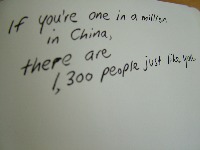 If you're one in a million
in China,
there are
1,300 people just like you